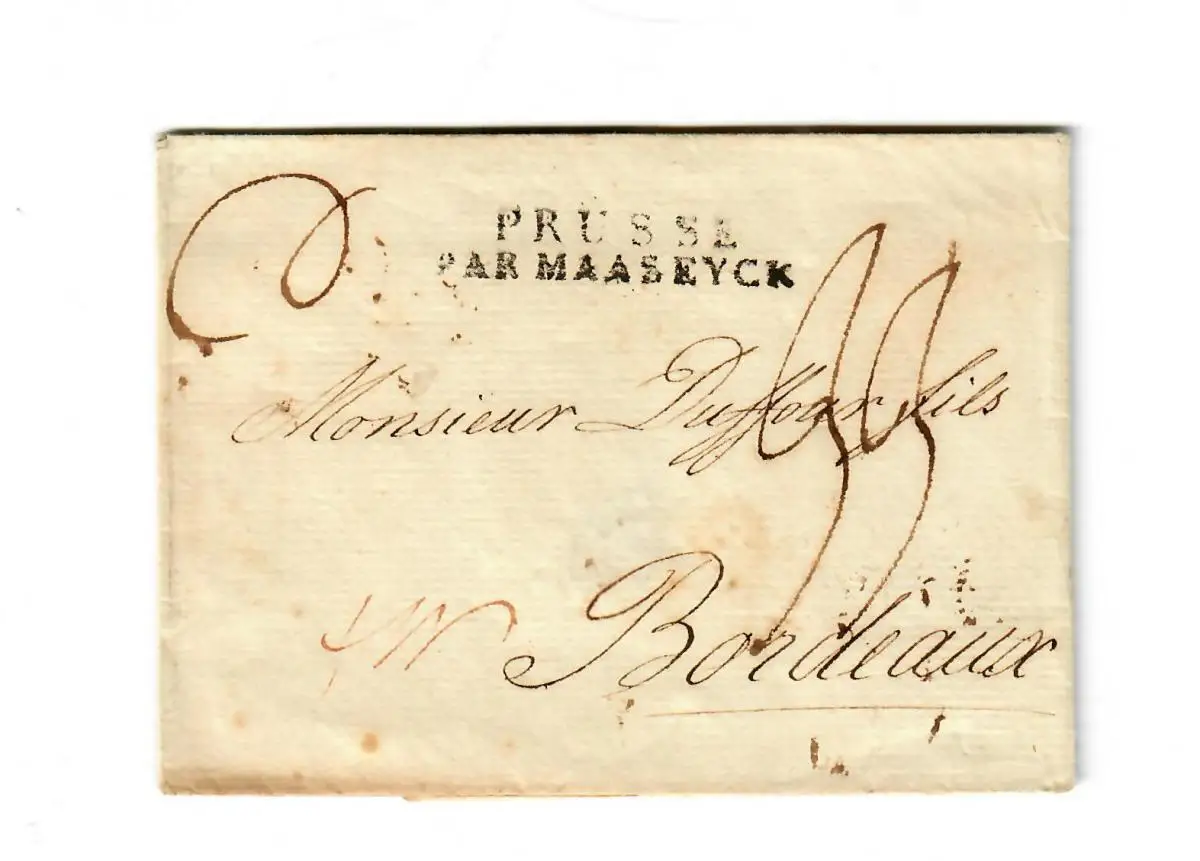 PRUSSE
PAR MAASEYCK
Monsieur Duffour fils
Bordeaux